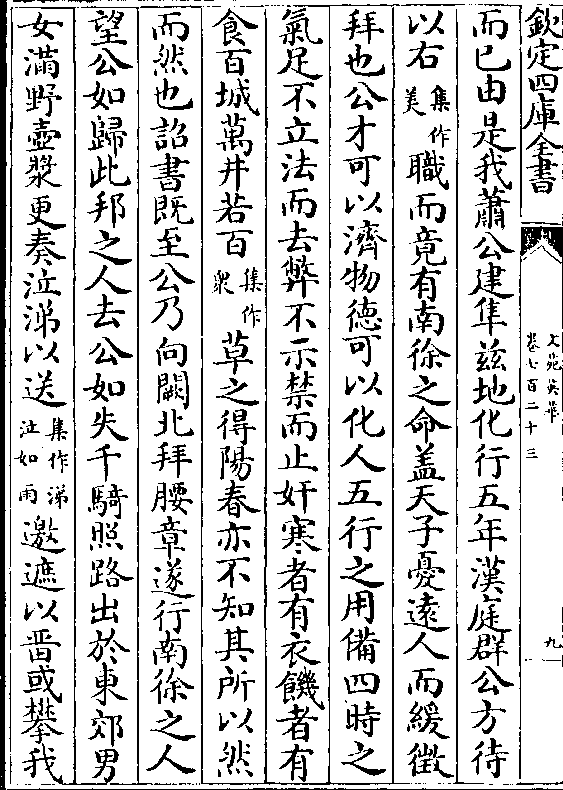 欽定四庫全書
文苑英華
卷七百二十三
九
而已由是我蕭公建隼兹地化行五年漢庭群公方待
以右集作美職而竟有南徐之命盖天子憂遠人而緩徴
拜也公才可以濟物德可以化人五行之用備四時之
氣足不立法而去弊不示禁而止奸寒者有衣饑者有
食百城萬井若百集作衆草之得陽春亦不知其所以然
而然也詔書既至公乃向闕北拜腰章遂行南徐之人
望公如歸此邦之人去公如失千騎照路出於東郊男
女滿野壺漿更奏泣涕以送集作涕泣如雨邀遮以啚或攀我